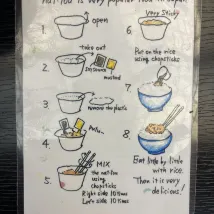 Nattou is very popular food in Japan.
1. open
2. take out
Soy sauce
mustard
3. remove the plastic
4. Put in.
5. MIX
the natto
using
chopsticks
Right side 10 times
Left side 10 times
6. Very Sticky
Put on the rice
using chopsticks
7.
8.
Eat little by little
with rice.
Then it is very
delicious!